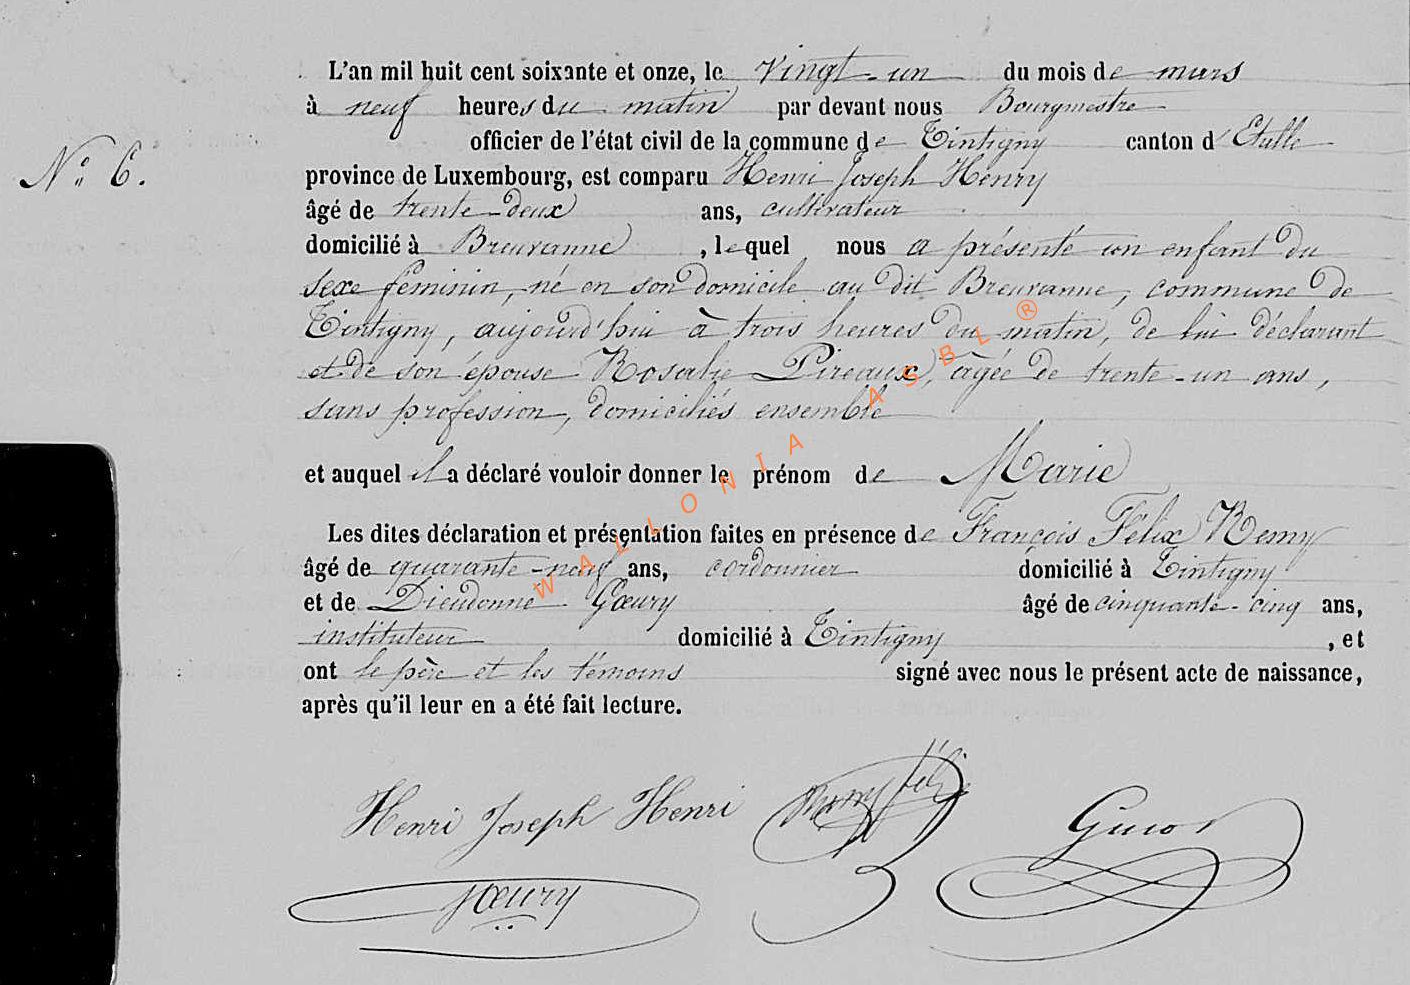 L'an mil huit cent soixante et onze, le vingt-un du mois de mars
à neuf heures du matin par devant nous Bourgmestre
officier de l'état civil de la commune de Tintigny canton d'Etalle
N° 6.
province de Luxembourg, est comparu Henri Joseph Henry
âgé de trente-deux ans, cultivateur
domicilié à Breuvanne, lequel nous a présenté un enfant du
sexe féminin, né en son domicile au dit Breuvanne, commune de
Tintigny, aujourd'hui à trois heures du matin, de lui déclarant
et de son épouse Rosalie Pireaux, âgée de trente-un ans,
sans profession, domiciliés ensemble
et auquel il a déclaré vouloir donner le prénom de Marie
Les dites déclaration et présentation faites en présence de François Félix Remy
âgé de quarante-neuf ans, cordonnier domicilié à Tintigny
et de Dieudonné Gœury âgé de cinquante-cinq ans,
instituteur domicilié à Tintigny, et
ont le père et les témoins signé avec nous le présent acte de naissance,
après qu'il leur en a été fait lecture.
WALLONIA ASBL ®
Henri Joseph Henri
Remy Félix
Gœury